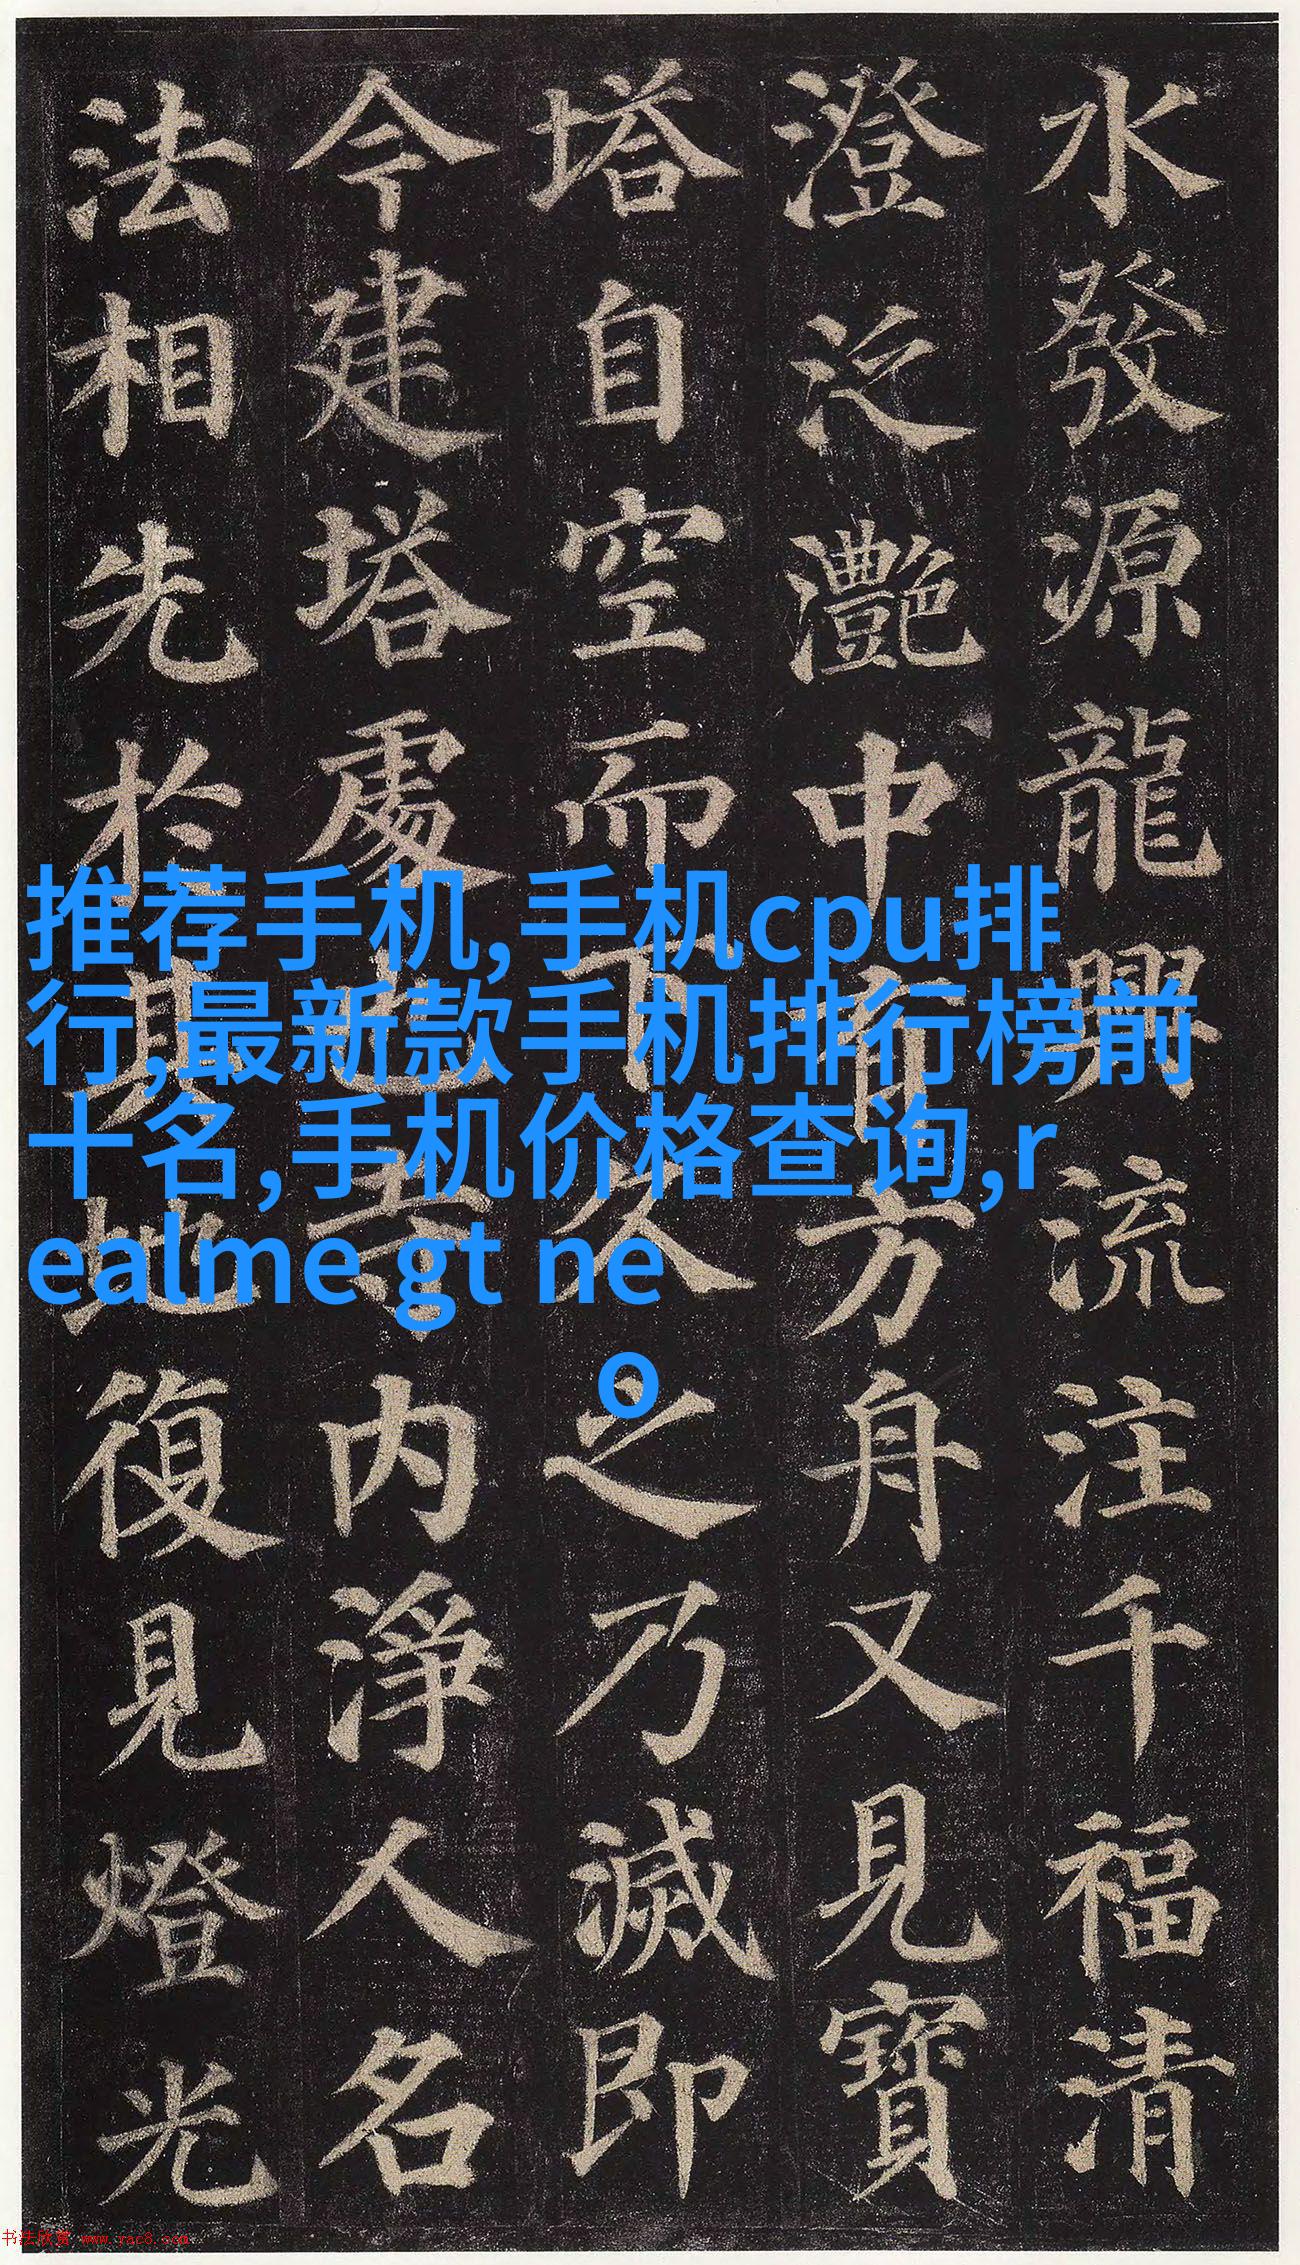 水發源龍興流注千福清
澄泛灩中有方舟又見寶
塔自空而下久之乃滅即
今建塔處也寺内淨人名
法相先於其地復見燈光
推荐手机,手机cpu排
行,最新款手机排行榜前
十名,手机价格查询,r
ealme gt ne
o
书法欣赏 www.yac8.com